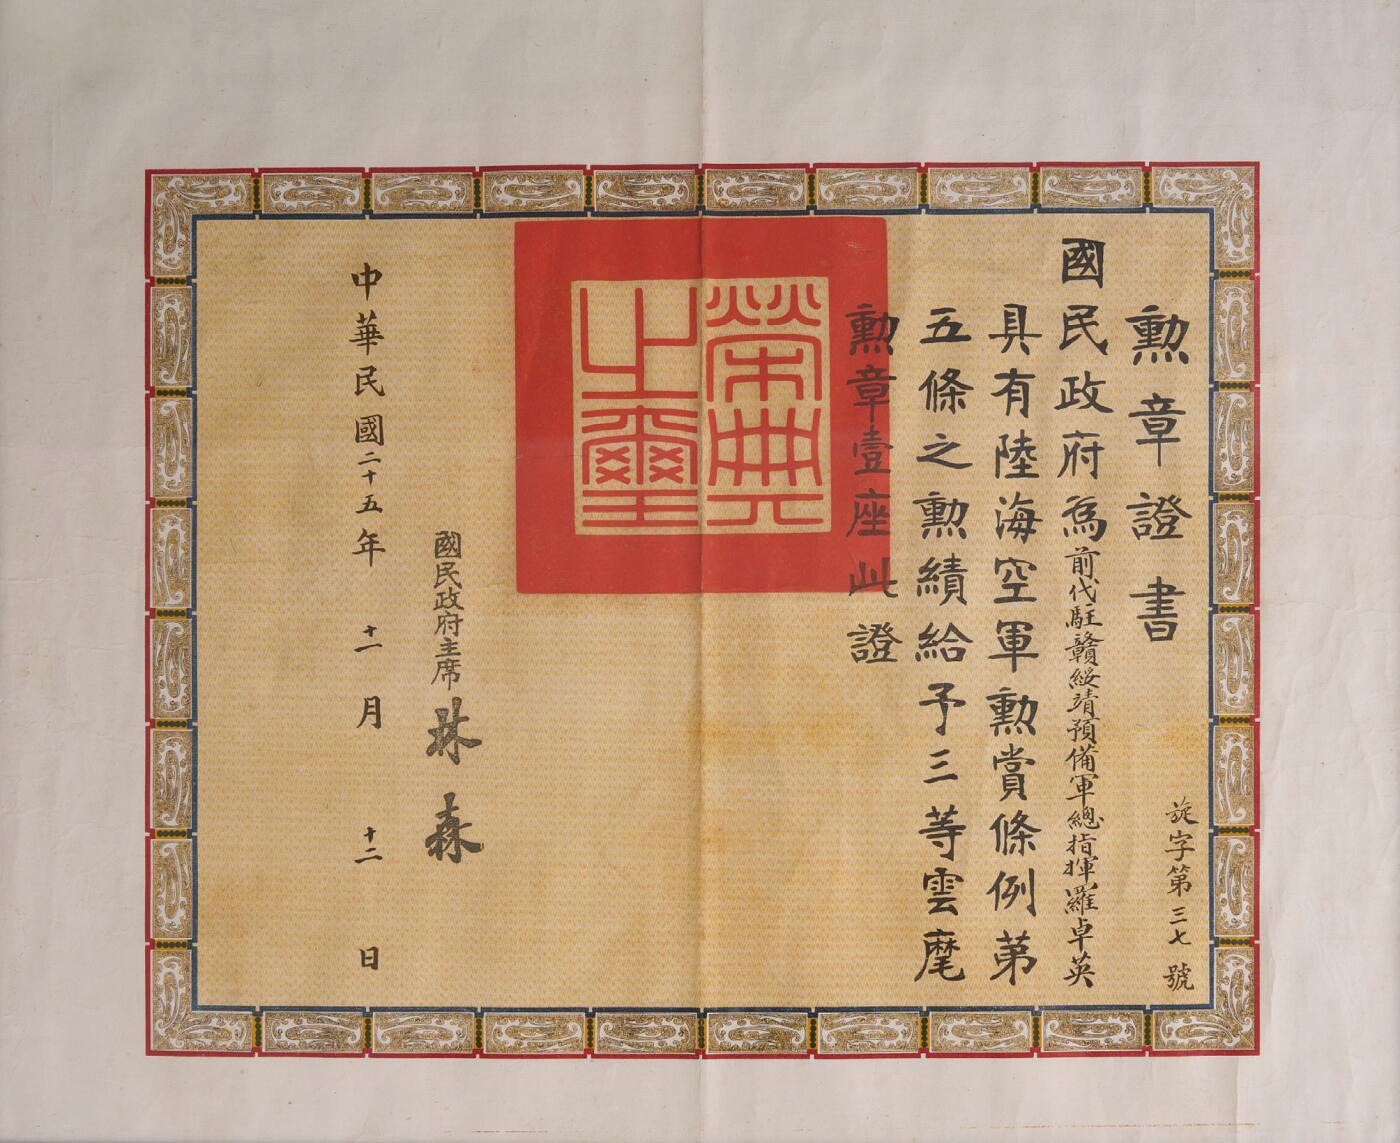 勲章證書
旋字第三七號
國民政府為前代駐贛綏靖預備軍總指揮羅卓英
具有陸海空軍勲賞條例第
五條之勲績給予三等雲麾
勲章壹座此證
榮典之璽
國民政府主席林森
中華民國二十五年十一月十二日